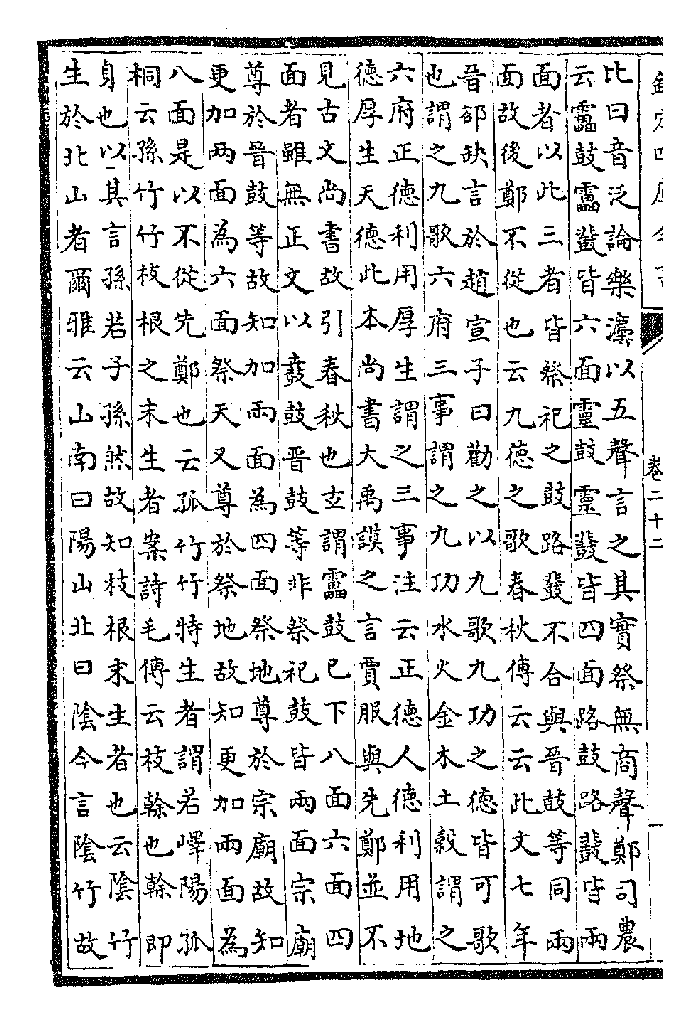 欽定四庫全書
卷二十二
比曰音泛論樂灋以五聲言之其實祭無商聲鄭司農
云靁鼓靁鼗皆六面靈鼓靈鼗皆四面路鼓路鼗皆兩
面者以此三者皆祭祀之鼓路鼗不合與晉鼓等同兩
面故後鄭不從也云九德之歌春秋傳云云此文七年
晉郤缺言於趙宣子曰勸之以九歌九功之德皆可歌
也謂之九歌六府三事謂之九功水火金木土穀謂之
六府正德利用厚生謂之三事注云正德人德利用地
德厚生天德此本尚書大禹謨之言賈服與先鄭並不
見古文尚書故引春秋也玄謂靁鼓已下八面六面四
面者雖無正文以鼖鼓晉鼓等非祭祀鼓皆兩面宗廟
尊於晉鼓等故知加兩面為四面祭地尊於宗廟故知
更加兩面為六面祭天又尊於祭地故知更加兩面為
八面是以不從先鄭也云孤竹竹特生者謂若嶧陽孤
桐云孫竹竹枝根之末生者案詩毛傳云枝榦也榦即
身也以其言孫若子孫然故知枝根末生者也云陰竹
生於北山者爾雅云山南曰陽山北曰陰今言陰竹故